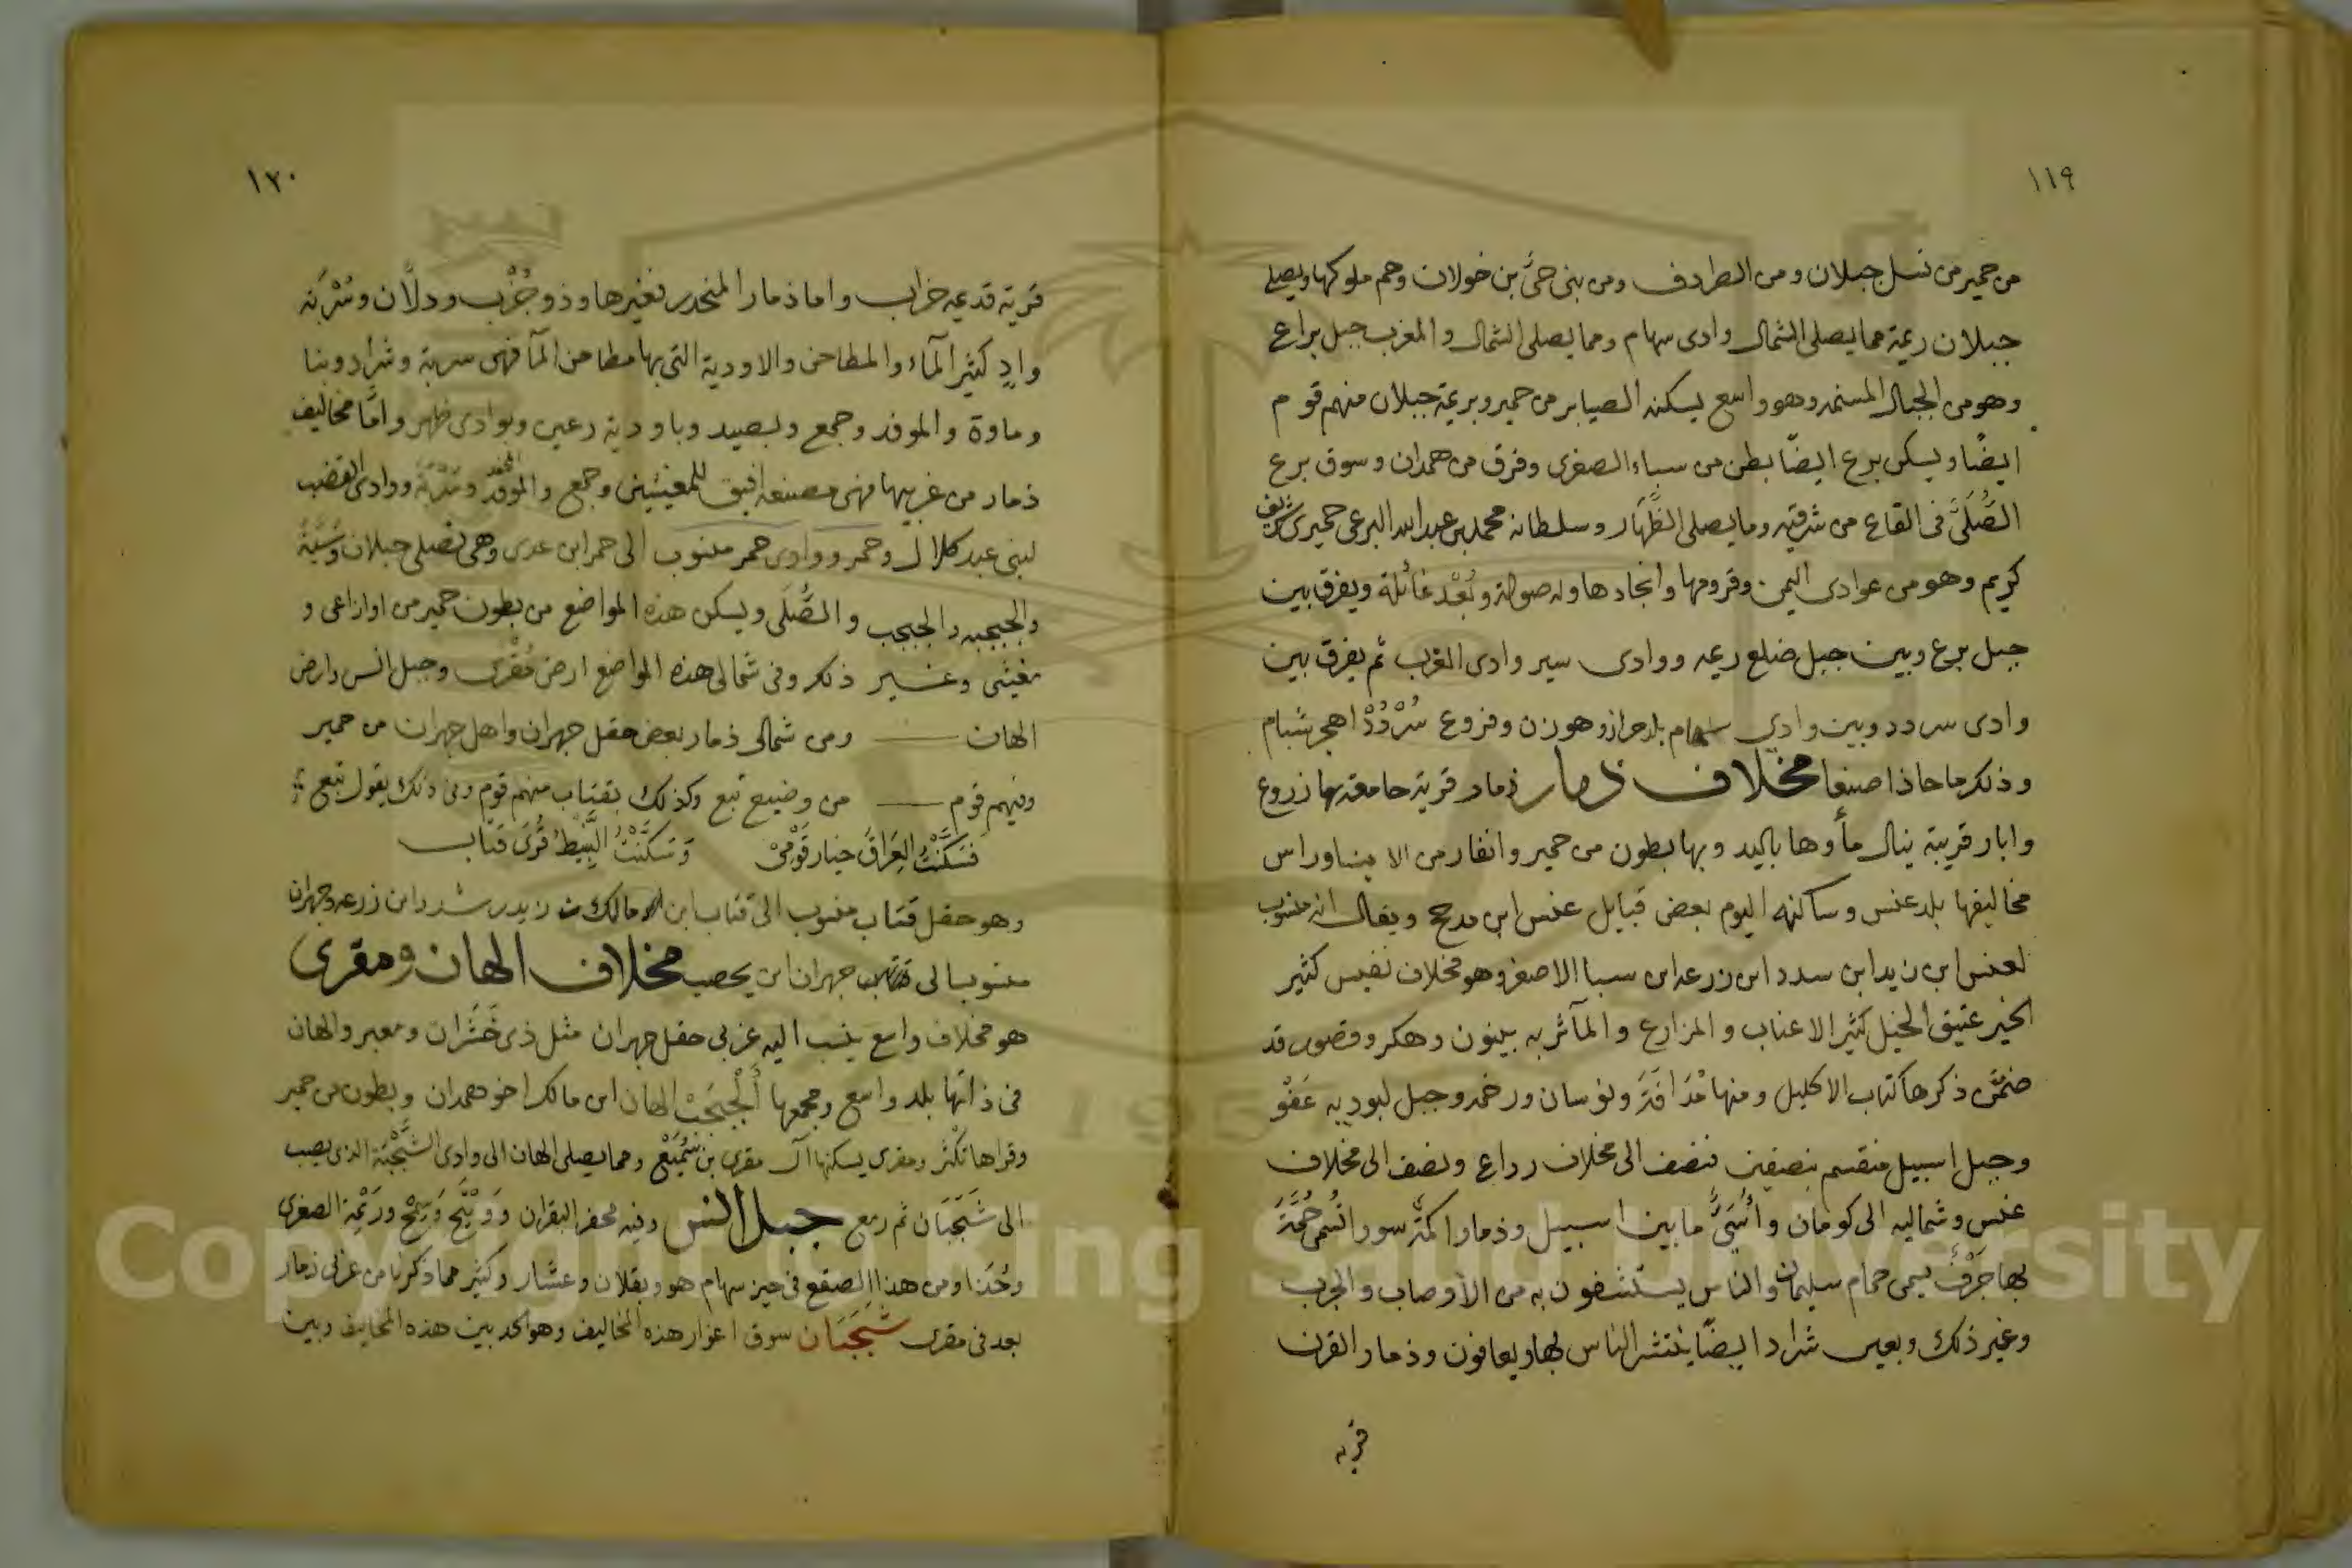 ١١٩
من حمير من نسل جبلان ومن الصرادف ومن بنى حىّ بن خولان وهم ملوكها ويصلى
جبلان ريمة مما يصلى الشمال وادى سهام ومما يصلى الشمال والمغرب جبل براع
وهو من الجبال المستمد وهو واسع يسكنه الصيابر من حمير وبريمة جبلان منهم قوم
ايضًا ويسكن برع ايضًا بطن من سباء الصغرى وفرق من همدان وسوق برع
الصُّلَىَّ فى القاع من شرقيه وما يصلى الظَّهَار وسلطانه محمد بن عبد الله البرعى حميرى شريف
كريم وهو من عوادى اليمن وقرومها وانجادها وله صولة وبُعْد غائلة ويفرق بين
جبل برع وبين جبل ضلع ريمه ووادى سير وادى العرب ثم يفرق بين
وادى سردد وبين وادى سهام بلد حراز وهوزن وفروع سُرْدُدْ اهجر شبام
وذلك ما حاذا صنعا مخلاف ذمار ذمار قرية جامعة بها زروع
وابار قريبة ينال مأوها باليد وبها بطون من حمير وانفار من الابناء وراس
مخاليفها بلد عنس وساكنه اليوم بعض قبايل عنس ابن مدحج ويقال انه منسوب
لعنس ابن زيد ابن سدد ابن زرعه ابن سبا الاصغر وهو مخلاف نفيس كثير
الخير عتيق الخيل كثير الاعناب والمزارع والمآثر به بينون وهكر وقصور قد
ضمّن ذكرها كتاب الاكليل ومنها مُدَافَةَ ونوسان ورخمه وجبل لبود به عَفْو
وجبل اسبيل منقسم بنصفين فنصف الى مخلاف رداع ونصف الى مخلاف
عنس وشماليه الى كومان وأسَىُّ ما بين اسبيل وذمار اكمَة سودا تُسمى حُمَّةَ
بها جَرْفٌ يسمى حمام سليمان والناس يستشفون به من الأوصاب والجرب
وغير ذلك وبعين شراد ايضًا ينتشر الناس بها ويعافون وذمار القرن
قريه
١٢٠
قرية قديمه خراب واما ذمار المنحدر فغيرها وذو جُزْب ودلَّان وسَرْبَة
وادٍ كثير المآء والمطاحن والاودية التى بها مطاحن المآ فهى سربة وشراد وبنا
وماوة والموفد وجمع ولبصيد وباودية رعين وبوادى ظهر وامَّا مخاليف
ذمار من غربيها فهى مصنعه افيق للمغيثيين وجمع والموفد وسَرْبَة ووادى القضب
لبنى عبد كلال وحمر ووادى حمر منسوب الى حمر ابن عدى وهى تصلى جبلان وسَيَّةُ
والجبجبه والجبجب والصُّلَى ويسكن هذه المواضع من بطون حمير من اوزاعى و
مغيثى وغير ذلك وفى شمالى هذه المواضع ارض مُقْرَى وجبل انس وارض
الهان ومن شمالى ذمار بعض حقل جهران واهل جهران من حمير
وفيهم قوم من وضيع تبع وكذلك بقتاب منهم قوم وفى ذلك يقول تبع
فَسَكَّنْتُ العِرَاقَ خيار قَوْمى وَسَكَّنْتُ النَّبِيطُ قُرَى قتاب
وهو حقل قتاب منسوب الى قتاب ابن مالك بن زيد بن شدد ابن زرعه وجهران
منسوبا الى جهران ابن يحصب مخلاف الهان ومقرى
هو مخلاف واسع ينسب اليه غربى حقل جهران مثل ذى خَشْران ومعبر والهان
فى ذاتها بلد واسع ومجمعها أَلْجَبْجَبْ الهان ابن مالك اخو همدان وبطون من حمير
وقراها تكثر ومقرى يسكنها آل مقرى بن سُمَيْع ومما يصلى الهان الى وادى الشَّجْبَة الذى يصب
الى شَجَبَان ثم رمع جبل انس وفيه محفر البقران وَوَيْنَح وَسِمْح ورَيْمَة الصغرى
وحُدَذا ومن هذا الصقع فى حيز سهام هو وبقلان وعشار وكثير مما ذكرنا من غربى ذمار
بعد فى مقرى شَجَبَان سوق اغوار هذه المخاليف وهو الحد بين هذه المخاليف وبين
Copyright © King Saud University
1957